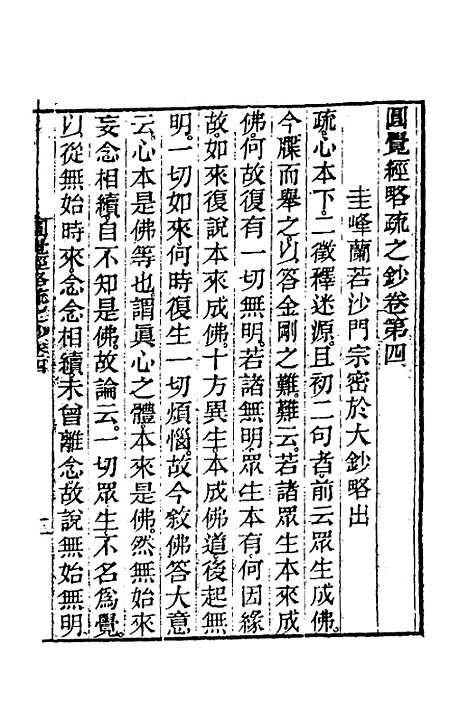 圓覺經略疏之鈔卷第四
圭峰蘭若沙門宗密於大鈔略出
疏。心本下。二徵釋迷源。且初二句者。前云眾生成佛。
今牒而舉之。以答金剛之難。難云。若諸眾生本來成
佛。何故復有一切無明。若諸無明。眾生本有。何因緣
故。如來復說本來成佛。十方異生。本成佛道。後起無
明。一切如來。何時復生一切煩惱。故今敘佛答大意
云。心本是佛等也。謂真心之體。本來是佛。然無始來
妄念相續。自不知是佛。故論云。一切眾生。不名為覺。
以從無始時來。念念相續。未曾離念。故說無始無明
圓覺經略疏之鈔卷四